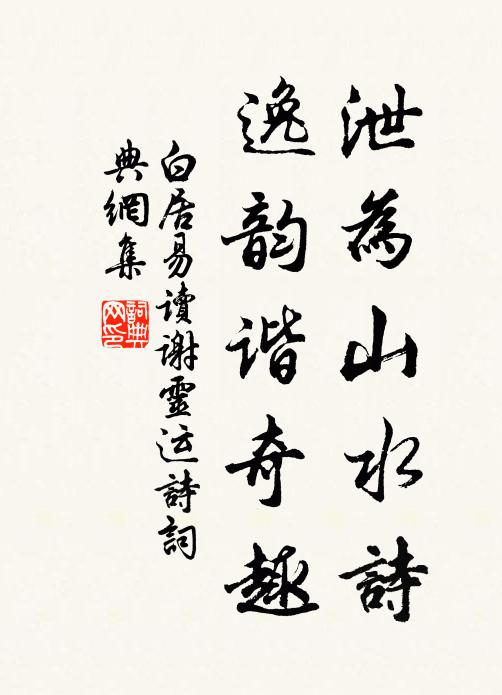 泄為山水詩
逸韵谐奇趣
白居易讀谢靈运詩詞
典網集
詞典
网印